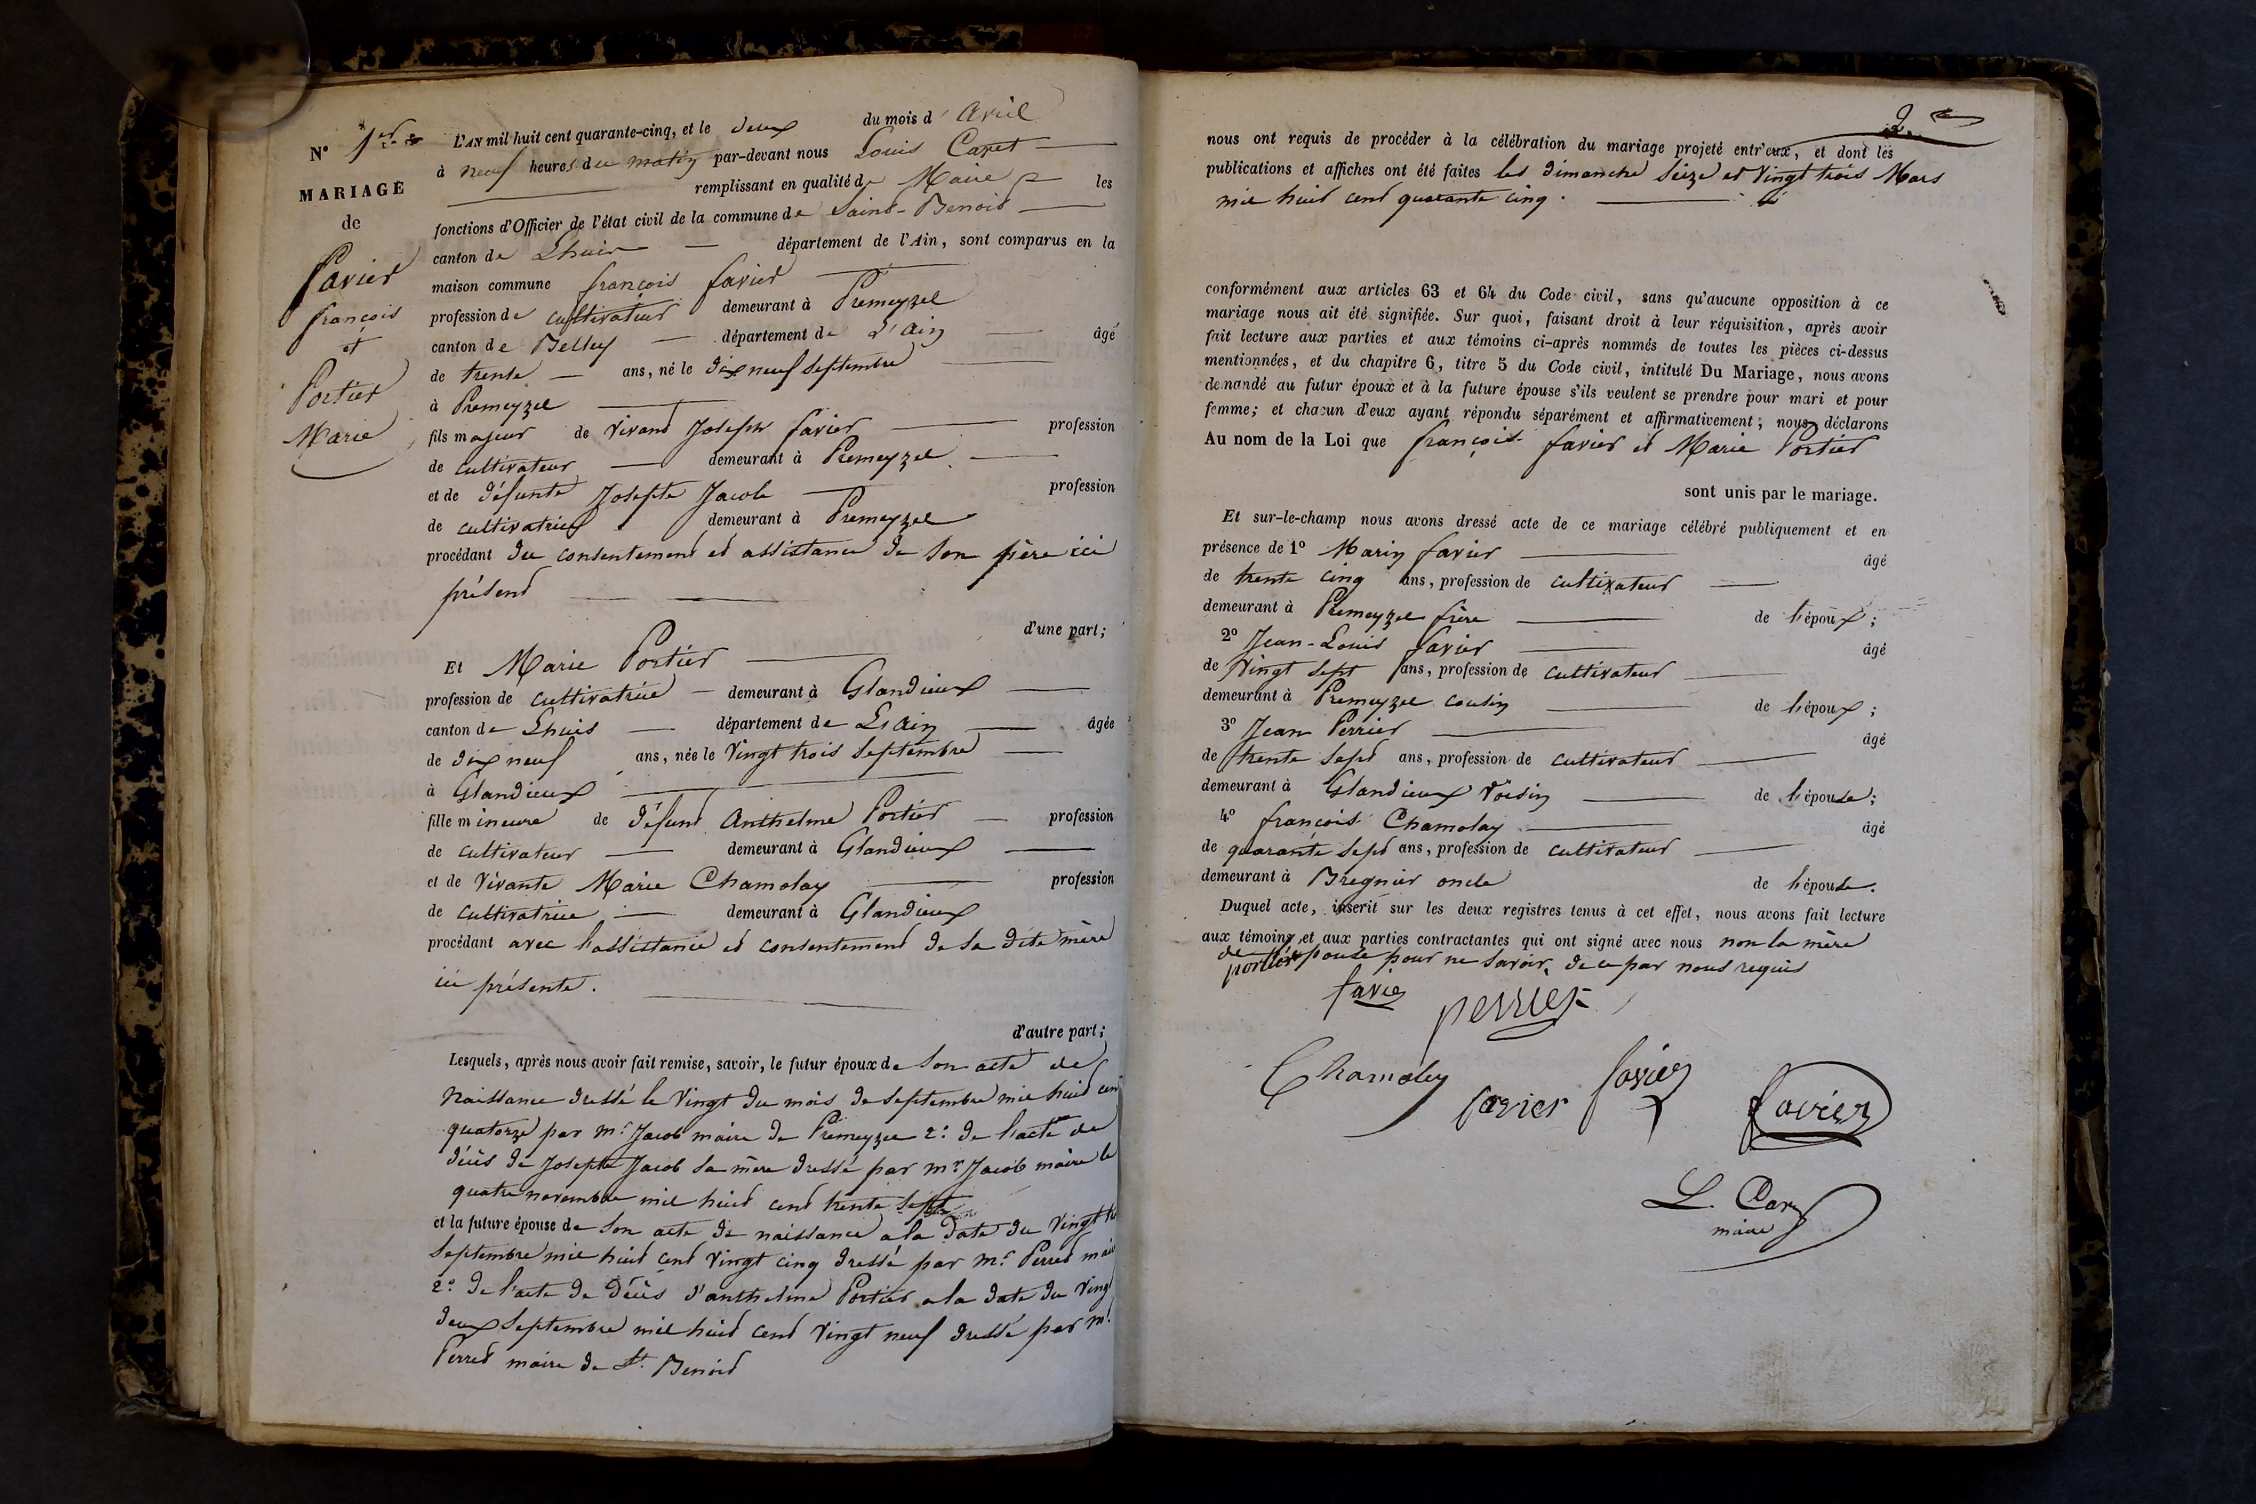 N° 1er
MARIAGE
de
favier
françois
et
Portier
Marie
L'AN mil huit cent quarante-cinq, et le deux du mois d'avril
à neuf heures du matin par-devant nous Louis Caret
remplissant en qualité de Maire les
fonctions d'Officier de l'état civil de la commune de Saint-Benoit
canton de Lhuis département de l'Ain, sont comparus en la
maison commune françois favier
profession de cultivateur demeurant à Premeyzel
canton de Belley département de L'ain âgé
de trente ans, né le dix neuf septembre
à Premeyzel
fils majeur de vivant Joseph favier profession
de cultivateur demeurant à Premeyzel
et de défunte Josephte Jacob profession
de cultivatrice demeurant à Premeyzel
procédant du consentement et assistance de son père ici
présent
d'une part;
Et Marie Portier
profession de cultivatrice demeurant à Glandieux
canton de Lhuis département de L'ain âgée
de dix neuf ans, née le vingt trois septembre
à Glandieux
fille mineure de défunt Anthelme Portier profession
de cultivateur demeurant à Glandieux
et de vivante Marie Chamolay profession
de cultivatrice demeurant à Glandieux
procédant avec l'assistance et consentement de sa dite mère
ici présente.
d'autre part;
Lesquels, après nous avoir fait remise, savoir, le futur époux de son acte de
naissance dressé le vingt du mois de septembre mil huit cent
quatorze par mr. Jacob maire de Premeyzel 2°. de l'acte de
décès de Josephte Jacob sa mère dressé par mr. Jacob maire le
quatre novembre mil huit cent trente sept
et la future épouse de son acte de naissance a la date du vingt
septembre mil huit cent vingt cinq dressé par mr. Perret maire
2°. de l'acte de décès d'anthelme Portier a la date du vingt
deux septembre mil huit cent vingt neuf dressé par mr.
Perret maire de St. Benoit
2
nous ont requis de procéder à la célébration du mariage projeté entr'eux, et dont les
publications et affiches ont été faites les dimanche seize et vingt trois Mars
mil huit cent quarante cinq.
conformément aux articles 63 et 64 du Code civil, sans qu'aucune opposition à ce
mariage nous ait été signifiée. Sur quoi, faisant droit à leur réquisition, après avoir
fait lecture aux parties et aux témoins ci-après nommés de toutes les pièces ci-dessus
mentionnées, et du chapitre 6, titre 5 du Code civil, intitulé Du Mariage, nous avons
demandé au futur époux et à la future épouse s'ils veulent se prendre pour mari et pour
femme; et chacun d'eux ayant répondu séparément et affirmativement; nous déclarons
Au nom de la Loi que françois favier et Marie Portier
sont unis par le mariage.
Et sur-le-champ nous avons dressé acte de ce mariage célébré publiquement et en
présence de 1° Marin favier âgé
de trente cinq ans, profession de cultivateur
demeurant à Premeyzel frère de l'époux;
2° Jean-Louis favier âgé
de vingt sept ans, profession de cultivateur
demeurant à Premeyzel cousin de l'époux;
3° Jean Perrier âgé
de trente sept ans, profession de cultivateur
demeurant à Glandieux voisin de l'épouse;
4° françois Chamolay âgé
de quarante sept ans, profession de cultivateur
demeurant à Bregnier oncle de l'épouse.
Duquel acte, inscrit sur les deux registres tenus à cet effet, nous avons fait lecture
aux témoins et aux parties contractantes qui ont signé avec nous non la mère
de l'épouse pour ne savoir, de ce par nous requis
portier
favier
perrier
Chamoley
favier
favier
favier
L. Caret
maire